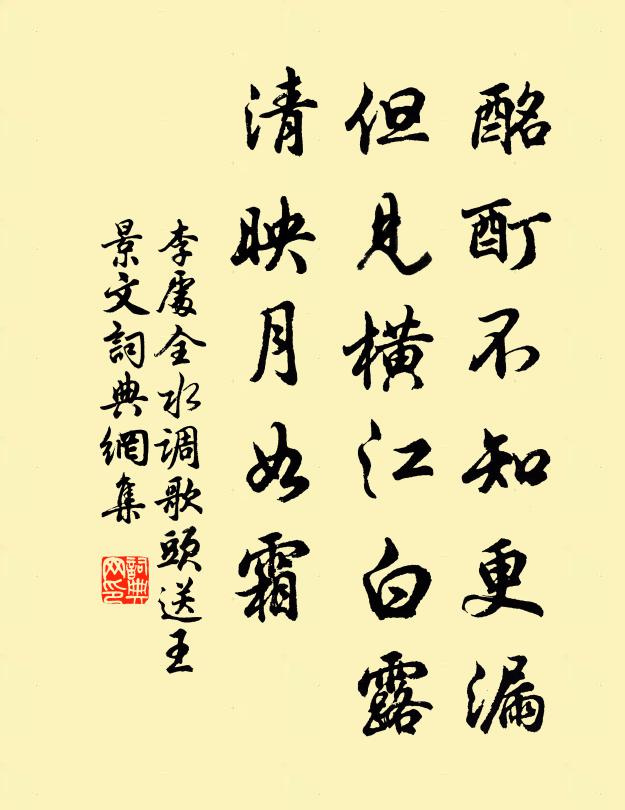 酩酊不知更漏
但见橫江白露
清映月如霜
李處全水调歌頭送王
景文詞典網集
詞典
网印